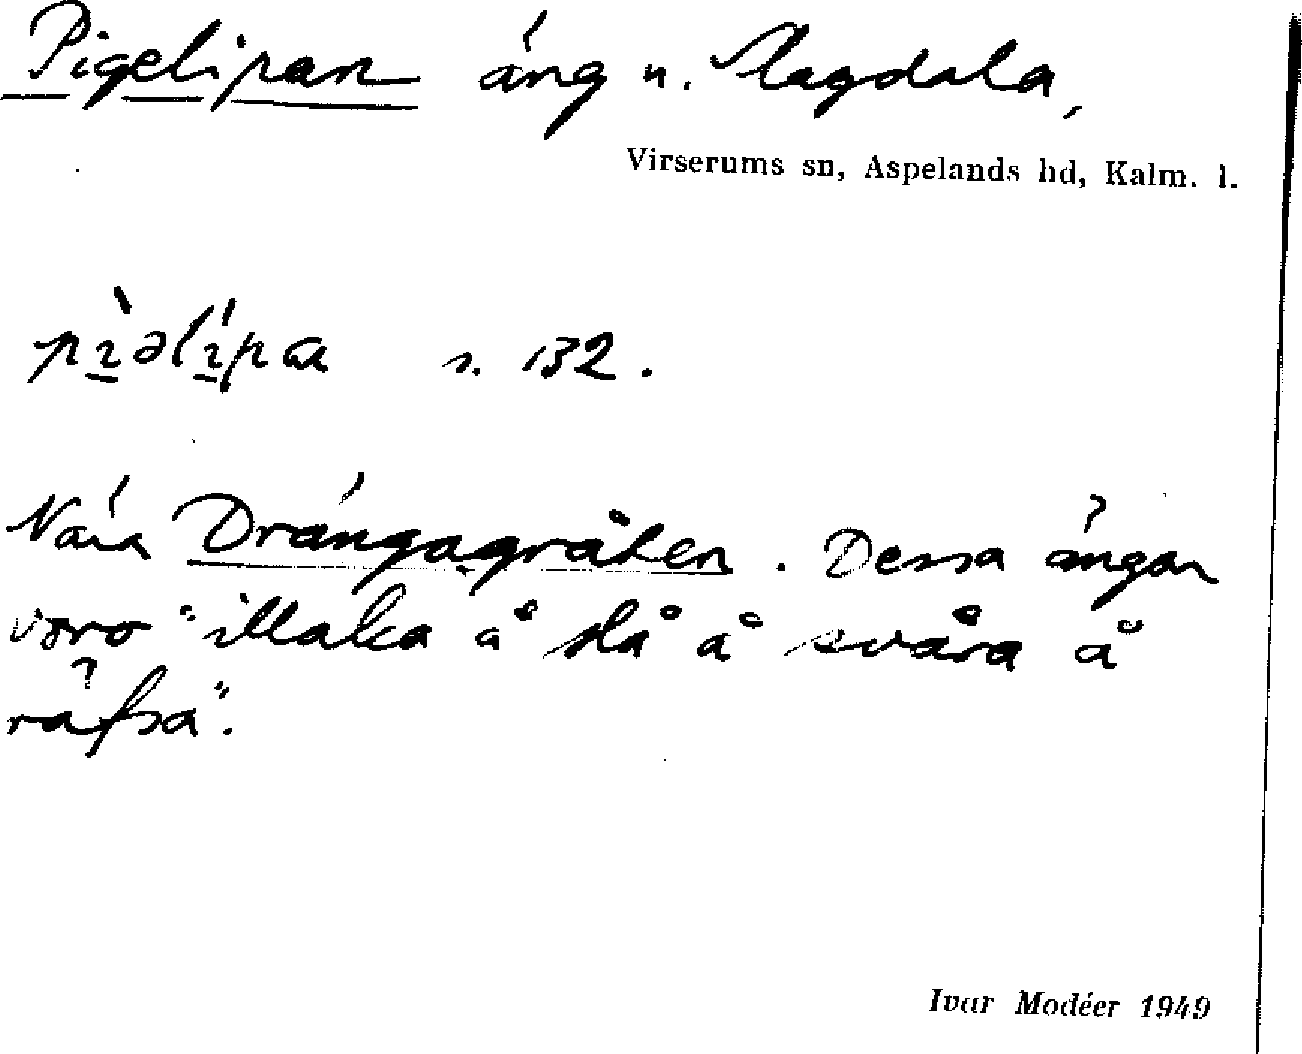 Pigelipan äng u. Slagdala,
Virserums sn, Aspelands hd, Kalm. l.
pìəlípa s. 132.
Nära Drängagråten. Dessa ängar
voro "illaka å slå å svåra å
räfsa".
Ivar Modéer 1949